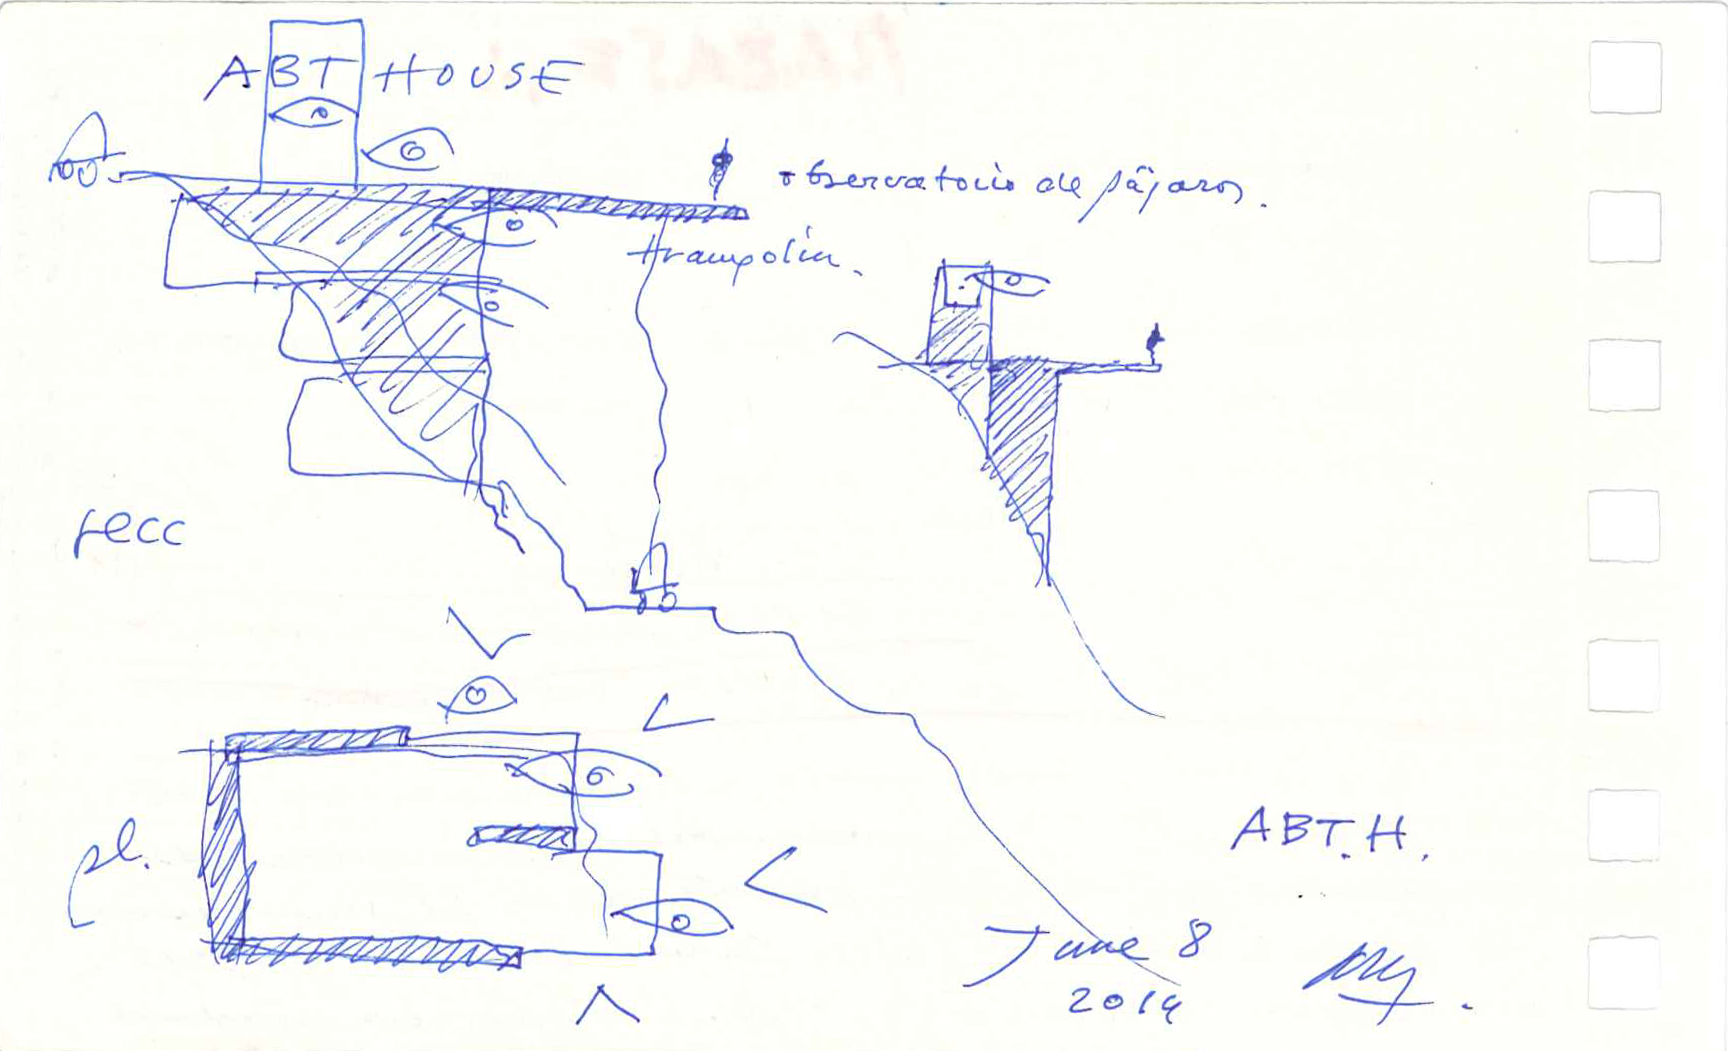 ABT HOUSE
observatorio de pájaros.
trampolín.
secc
pl.
ABT.H.
June 8
2014